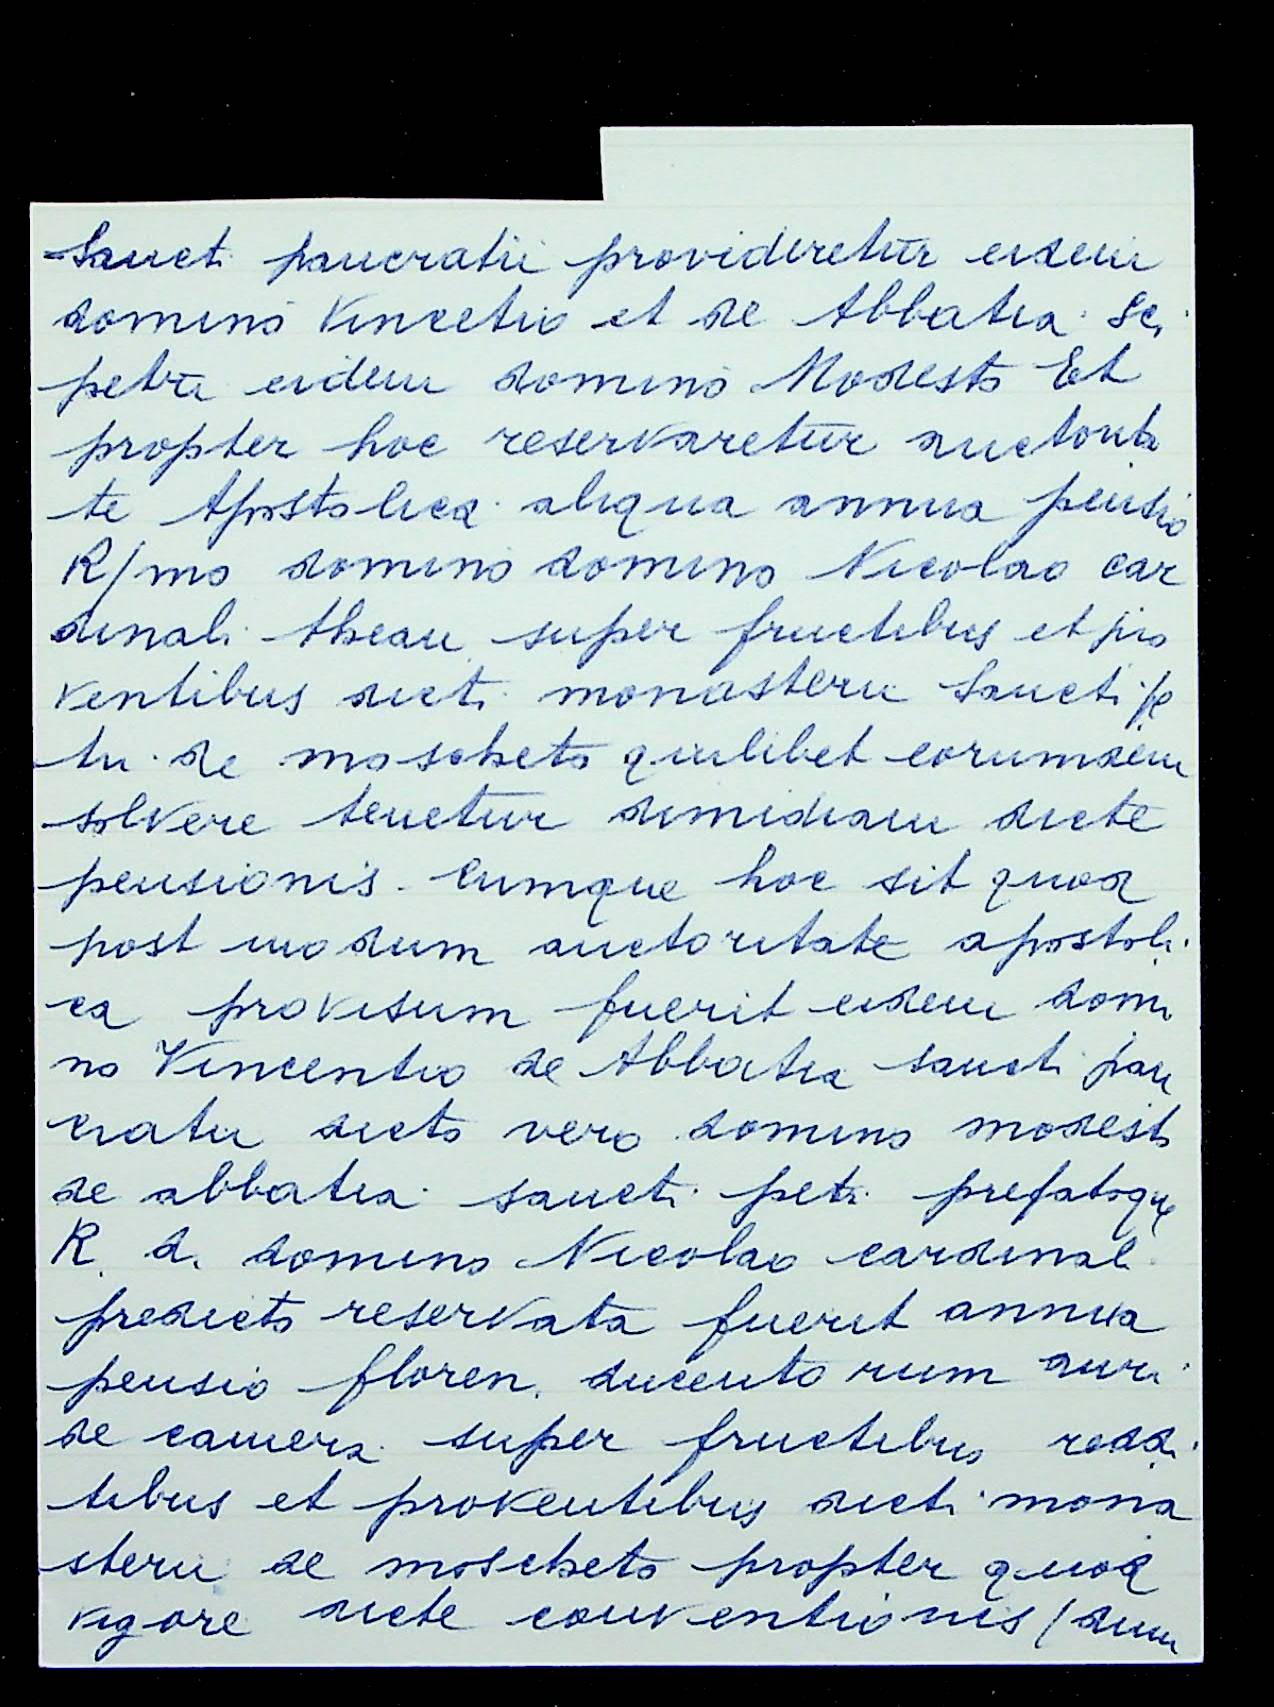 Sancti pancratii provideretur eidem
domino Vincetio et de Abbatia Sci
petri eidem domino Modesto Et
propter hoc reservaretur auctorita
te Apostolica aliqua annua pensio
R/mo domino domino Nicolao car
dinali thean super fructibus et pro
ventibus dicti monasterii Sancti pe
tri de moscheto quilibet eorumdem
solvere tenetur dimidiam dicte
pensionis. Cumque hoc sit quod
post modum auctoritate apostoli
ca provisum fuerit eidem domi
no Vincentio de Abbatia sancti pan
cratii dicto vero domino modesto
de abbatia sancti petri prefatoque
R. d. domino Nicolao cardinali
predicto reservata fuerit annua
pensio floren. ducentorum auri
de camera super fructibus reddi
tibus et proventibus dicti mona
sterii de moscheto propter quod
vigore dicte conventionis / dum